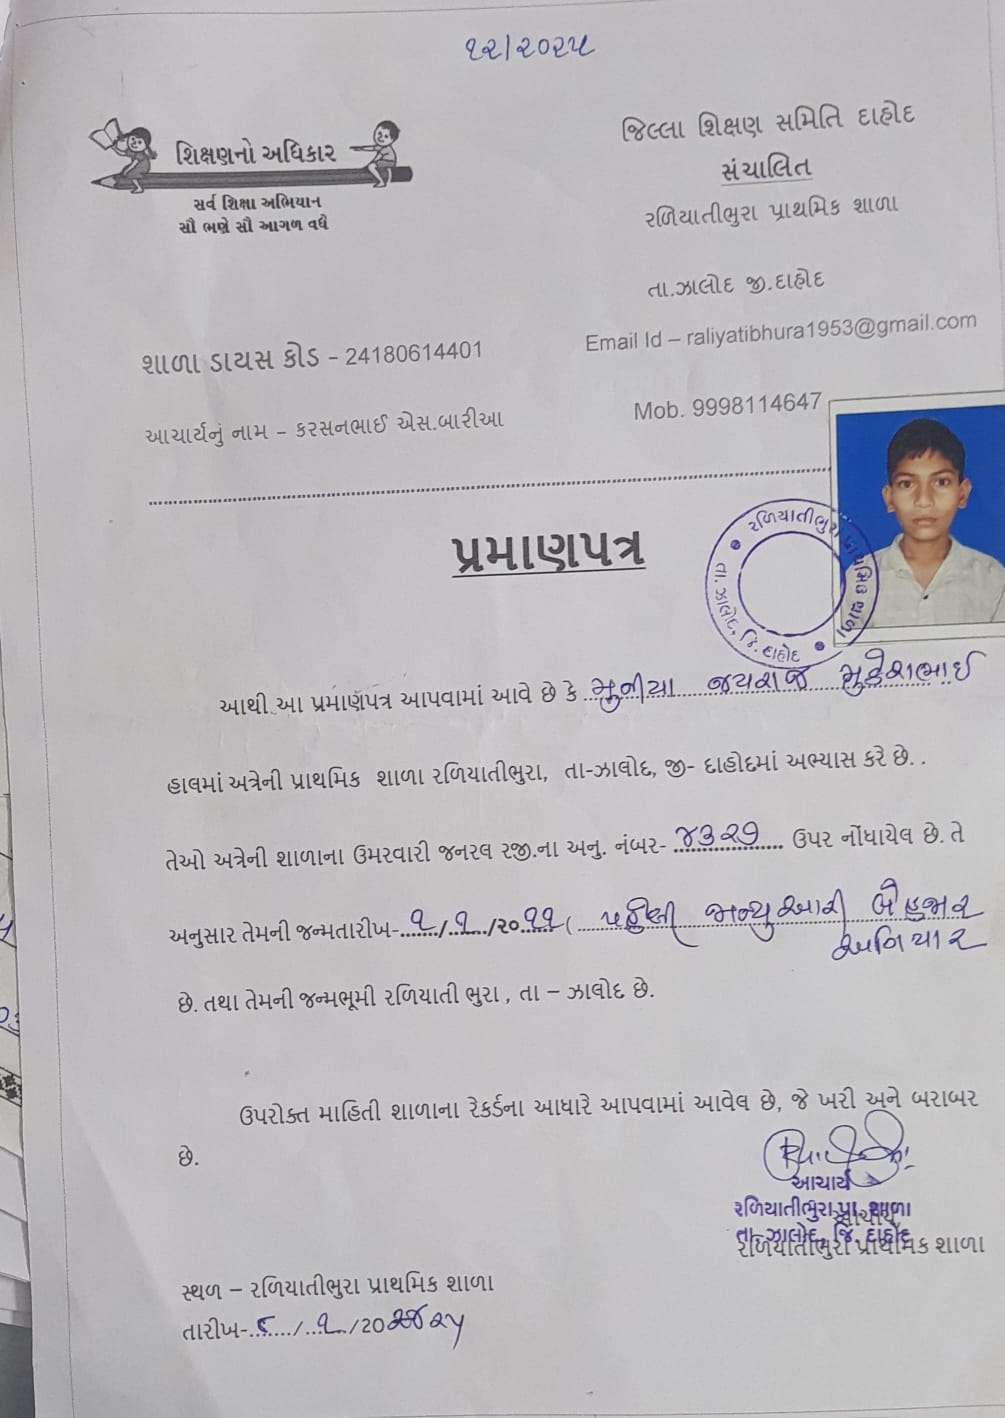 ૧૨/૨૦૨૫
શિક્ષણનો અધિકાર
સર્વ શિક્ષા અભિયાન
સૌ ભણે સૌ આગળ વધે
જિલ્લા શિક્ષણ સમિતિ દાહોદ
સંચાલિત
રળિયાતીભુરા પ્રાથમિક શાળા
તા.ઝાલોદ જી.દાહોદ
શાળા ડાયસ કોડ - 24180614401
Email Id – raliyatibhura1953@gmail.com
આચાર્યનું નામ – કરસનભાઈ એસ.બારીઆ
Mob. 9998114647
રળિયાતીભુરા પ્રાથમિક શાળા
તા. ઝાલોદ, જિ. દાહોદ
પ્રમાણપત્ર
આથી આ પ્રમાણપત્ર આપવામાં આવે છે કે મુનીયા જયરાજ મુકેશભાઈ
હાલમાં અત્રેની પ્રાથમિક શાળા રળિયાતીભુરા, તા-ઝાલોદ, જી- દાહોદમાં અભ્યાસ કરે છે. .
તેઓ અત્રેની શાળાના ઉમરવારી જનરલ રજી.ના અનુ. નંબર- ૪૩૨૭ ઉપર નોંધાયેલ છે. તે
અનુસાર તેમની જન્મતારીખ-૧/૧/૨૦૧૧( પહેલી જાન્યુઆરી બેહજાર
અગિયાર
છે. તથા તેમની જન્મભૂમી રળિયાતી ભુરા , તા – ઝાલોદ છે.
ઉપરોક્ત માહિતી શાળાના રેકર્ડના આધારે આપવામાં આવેલ છે, જે ખરી અને બરાબર
છે.
આચાર્ય
રળિયાતીભુરા પ્રા. શાળા
તા. ઝાલોદ, જિ. દાહોદ
આચાર્ય
રળિયાતીભુરા પ્રાથમિક શાળા
સ્થળ – રળિયાતીભુરા પ્રાથમિક શાળા
તારીખ- ૬/૧/20 ૨૫